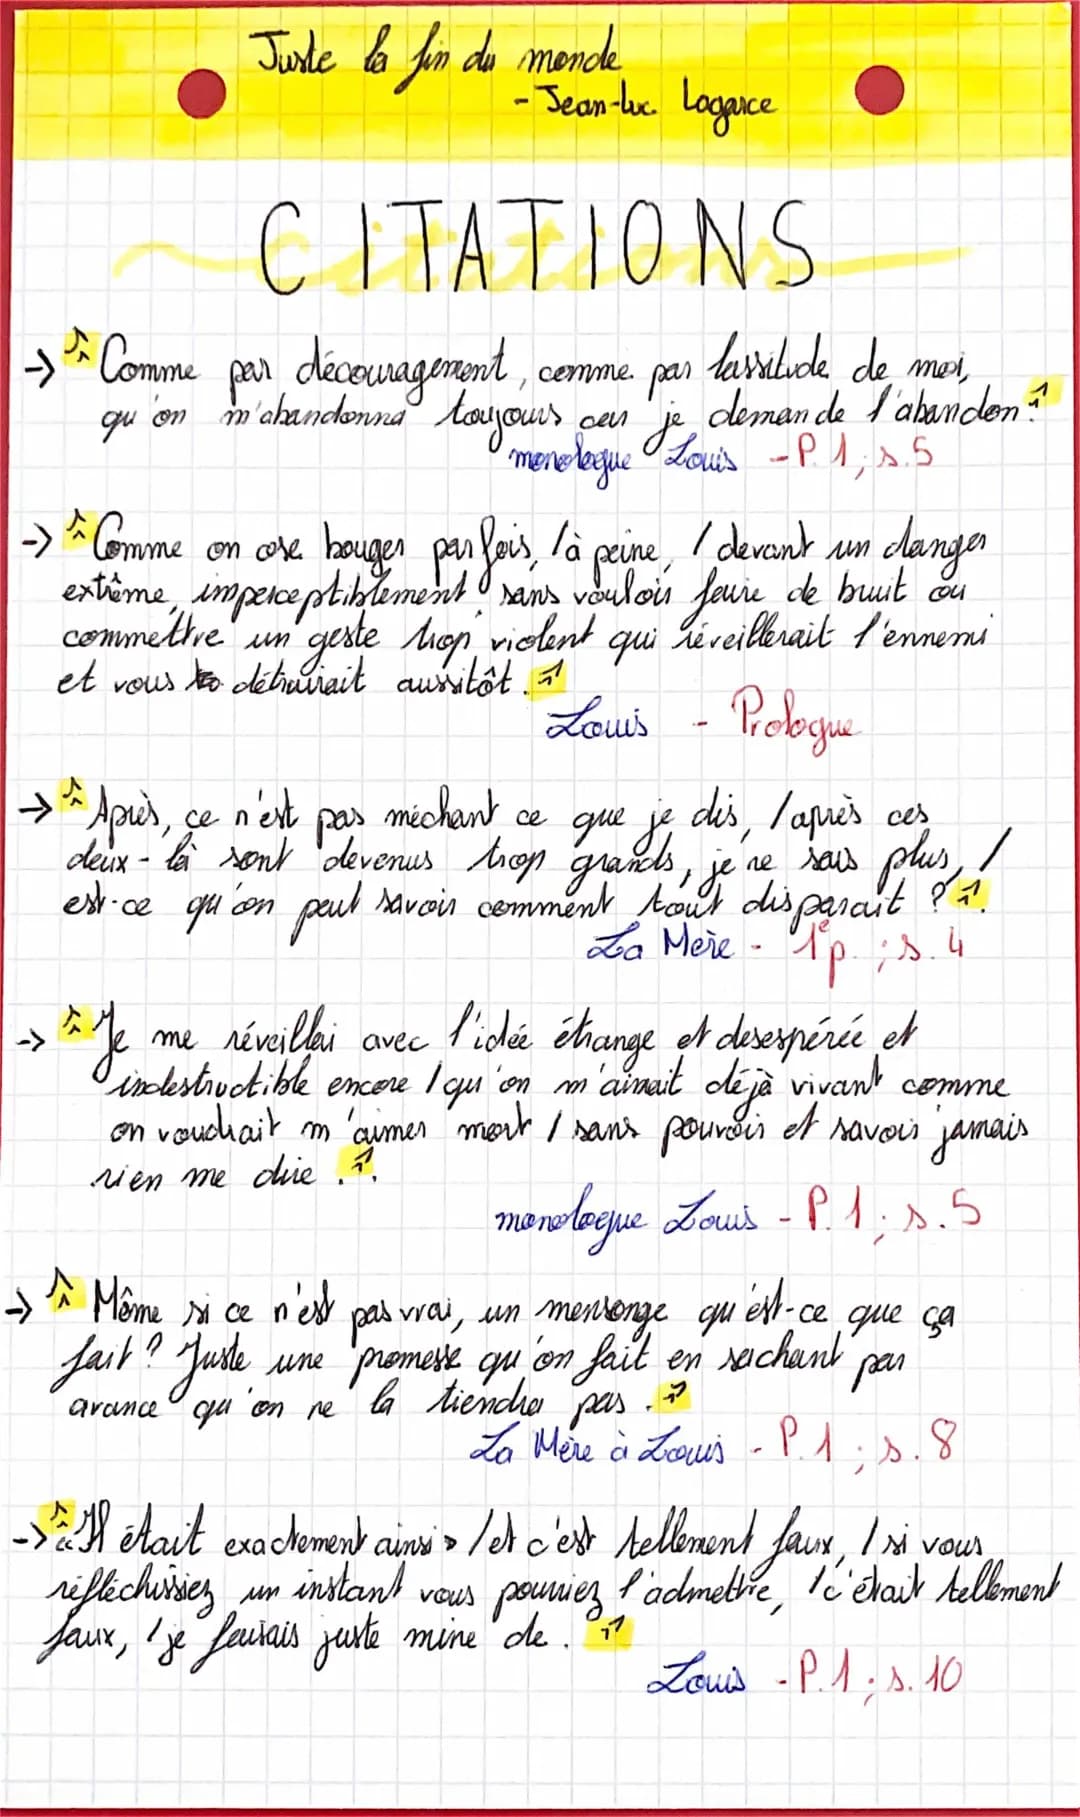 Juste la fin du monde
- Jean-Luc Lagarce
CITATIONS
Citations
→ « Comme par découragement, comme par lassitude de moi,
qu'on m'abandonna toujours car je demande l'abandon »
monologue Louis - P. 1 ; s. 5
→ « Comme on ose bouger parfois, / à peine, / devant un danger
extrême, imperceptiblement, sans vouloir faire de bruit ou
commettre un geste trop violent qui réveillerait l'ennemi
et vous détruirait aussitôt. »
Louis - Prologue
→ « Après, ce n'est pas méchant ce que je dis, / après ces
deux-là sont devenus trop grands, je ne sais plus, /
est-ce qu'on peut savoir comment tout disparait ? ».
La Mère - 1e p. ; s. 4
→ « Je me réveillai avec l'idée étrange et desespérée et
indestructible encore / qu'on m'aimait déjà vivant comme
on voudrait m'aimer mort / sans pouvoir et savoir jamais
rien me dire. ».
monologue Louis - P. 1 ; s. 5
→ « Même si ce n'est pas vrai, un mensonge qu'est-ce que ça
fait ? Juste une promesse qu'on fait en sachant par
avance qu'on ne la tiendra pas. »
La Mère à Louis - P. 1 ; s. 8
→ « « Il était exactement ainsi » / et c'est tellement faux, / si vous
réfléchissiez un instant vous pourriez l'admettre, / c'était tellement
faux, / je faisais juste mine de. »
Louis - P. 1 ; s. 10